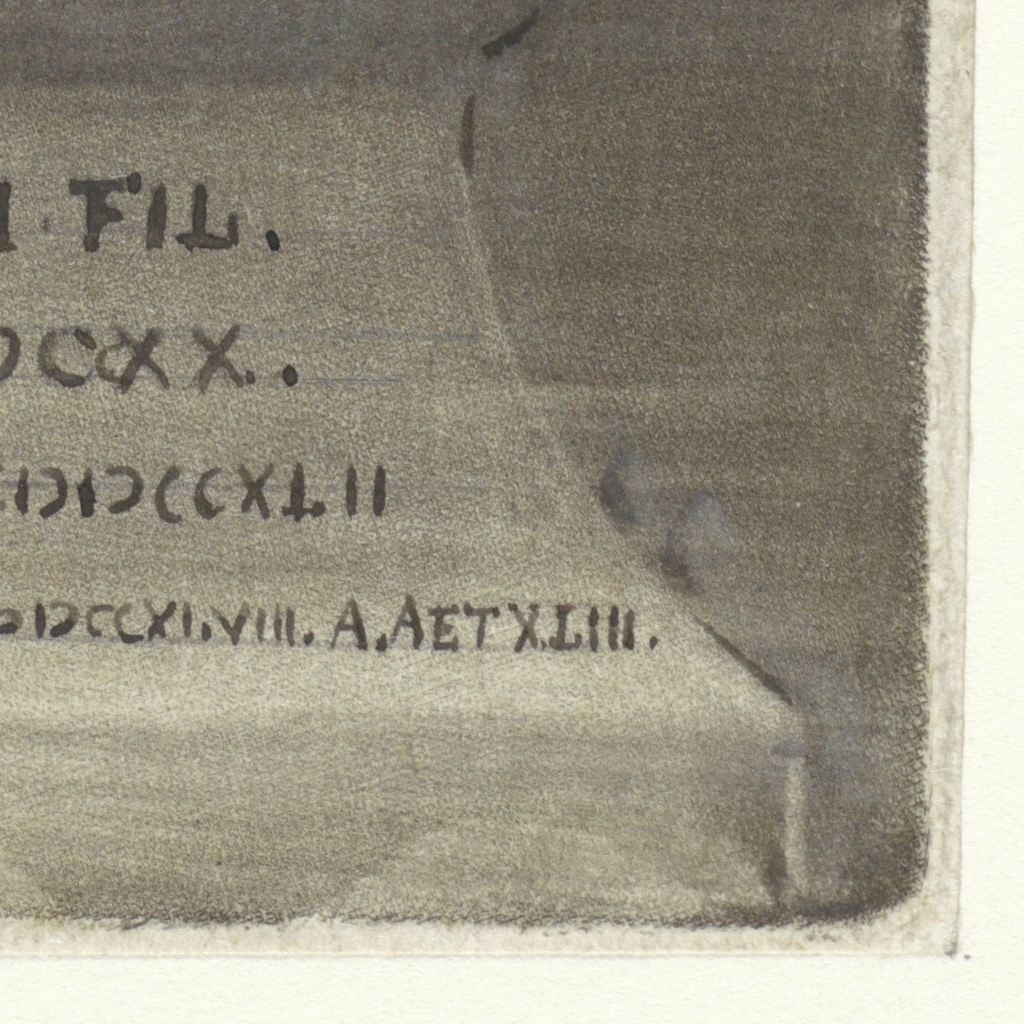 FIL.
CXX.
IƆIƆCCXLII
IƆCCXLVIII. A. AET XLIII.